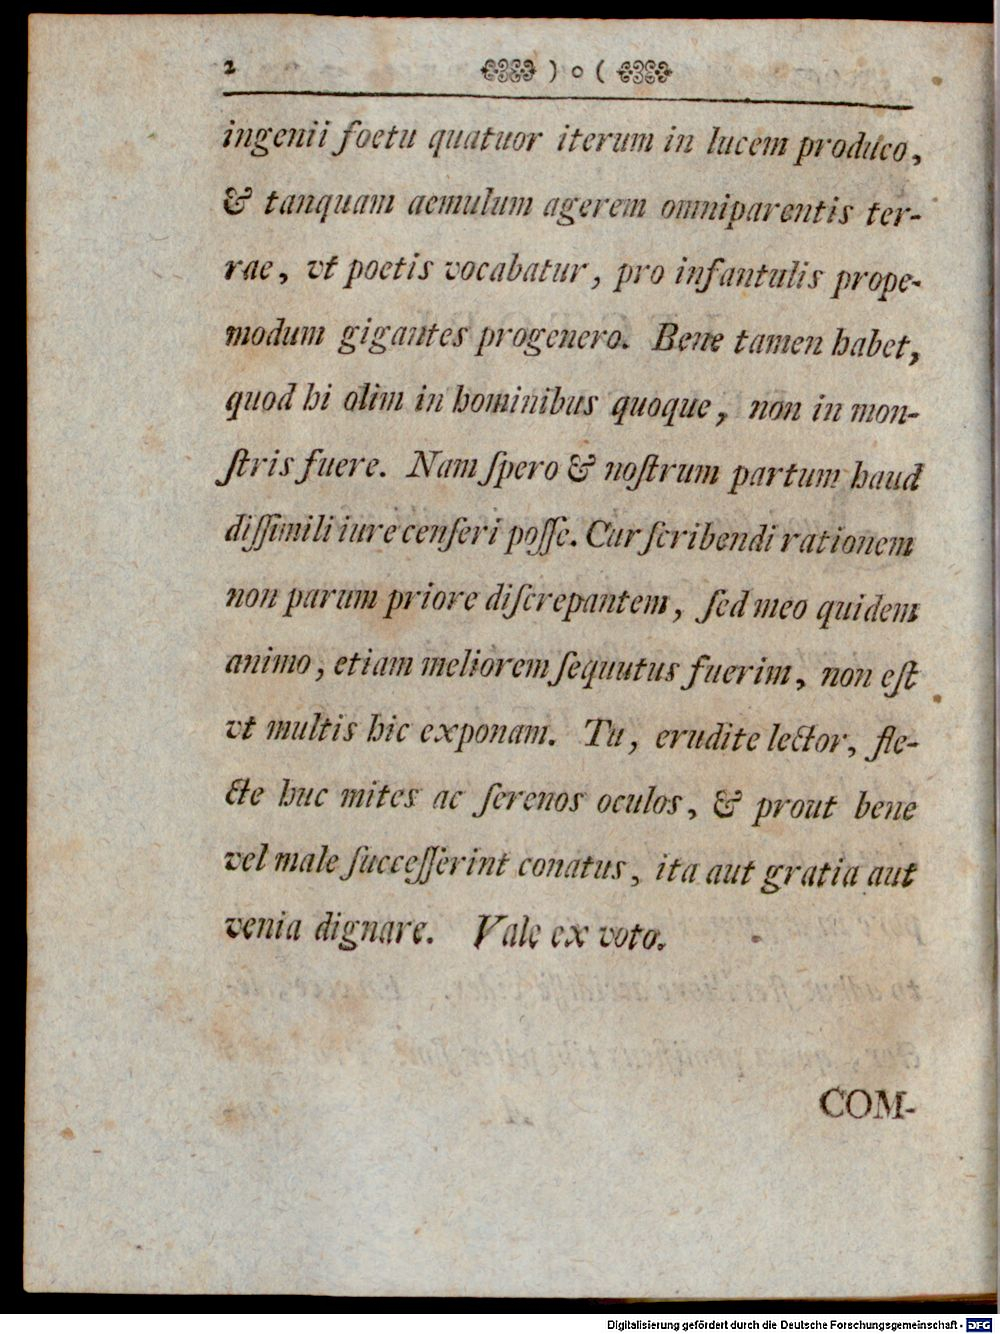 2 ) o (
ingenii foetu quatuor iterum in lucem produco,
& tanquam aemulum agerem omniparentis ter-
rae, vt poetis vocabatur, pro inſantulis prope-
modum gigantes progenero. Bene tamen habet,
quod hi olim in hominibus quoque, non in mon-
ſtris fuere. Nam ſpero & noſtrum partum haud
diſſimili iure cenſeri poſſe. Cur ſcribendi rationem
non parum priore diſcrepantem, ſed meo quidem
animo, etiam meliorem ſequutus fuerim, non eſt
vt multis hic exponam. Tu, erudite lector, fle-
cte huc mites ac ſerenos oculos, & prout bene
vel male ſucceſſerint conatus, ita aut gratia aut
venia dignare. Vale ex voto.
COM-
Digitalisierung gefördert durch die Deutsche Forschungsgemeinschaft - DFG